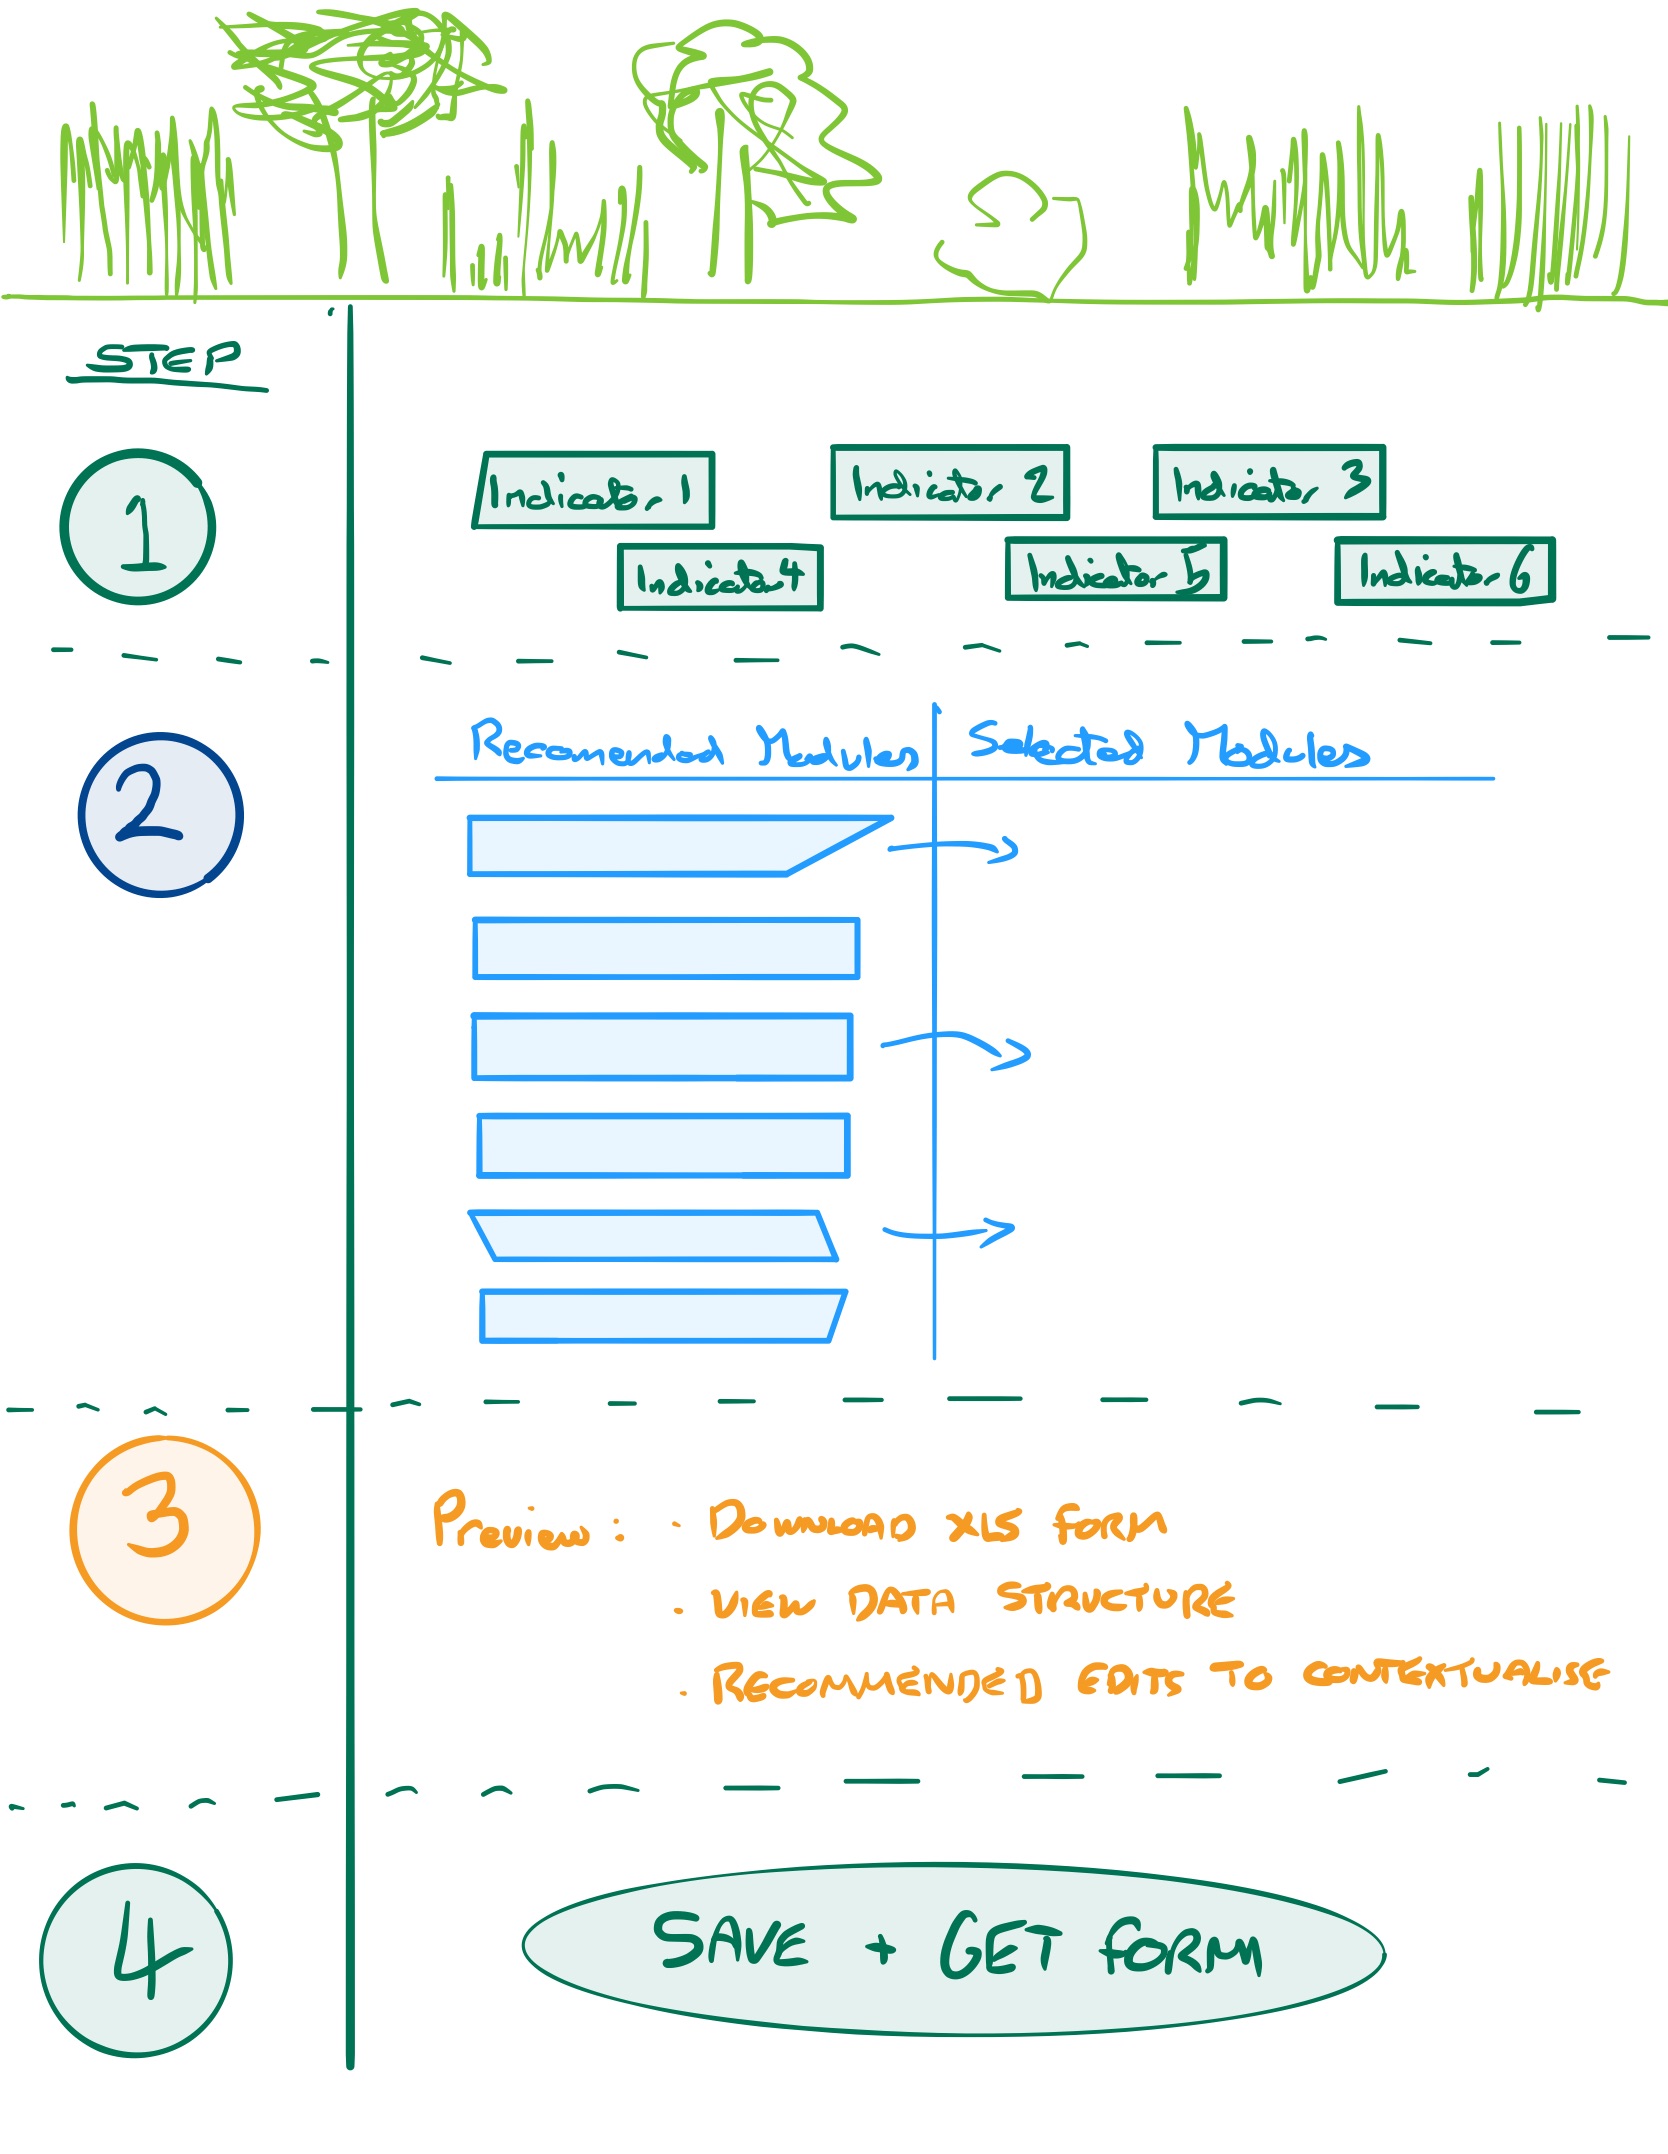 STEP
1
Indicator 1 Indicator 2 Indicator 3
Indicator 4 Indicator 5 Indicator 6
2
Recomended Modules Selected Modules
3
Preview: · DOWNLOAD XLS FORM
· VIEW DATA STRUCTURE
· RECOMMENDED EDITS TO CONTEXTUALISE
4
SAVE + GET FORM